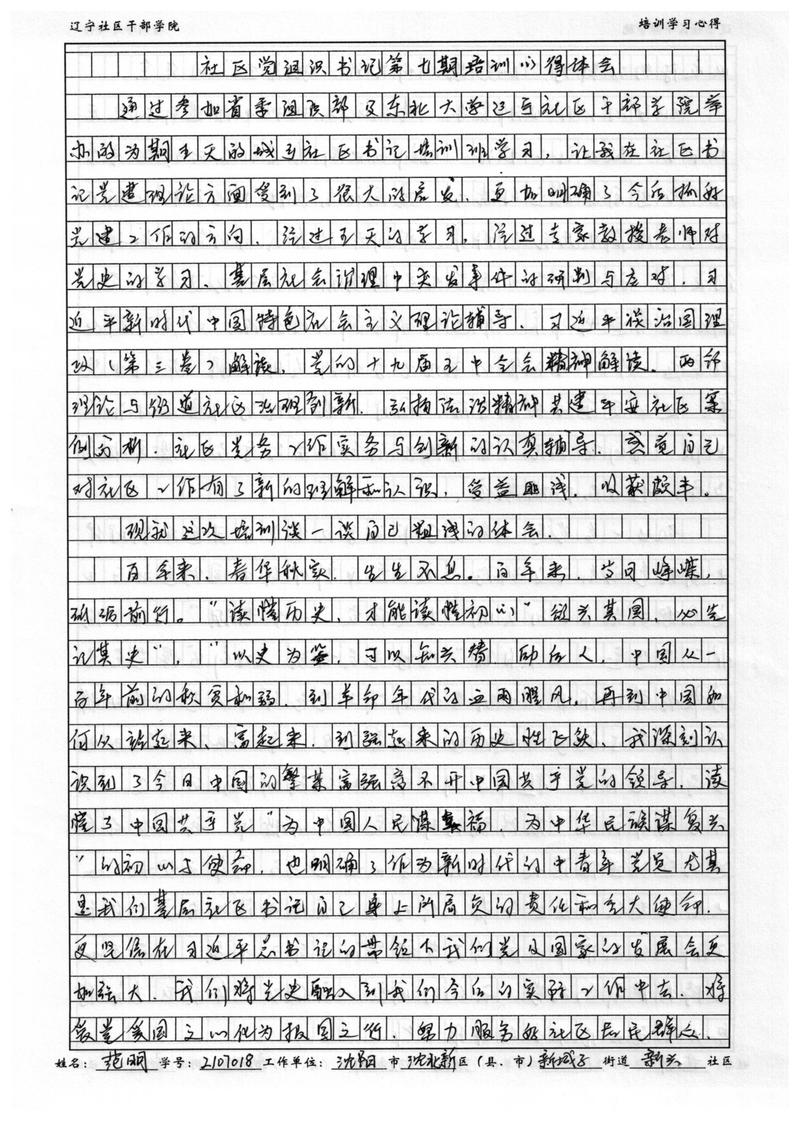 辽宁社区干部学院 培训学习心得
社区党组织书记第七期培训心得体会
通过参加省委组织部及东北大学辽宁社区干部学院举
办的为期五天的城市社区书记培训班学习，让我在社区书
记党建理论方面受到了很大的启发，更加明确了今后抓好
党建工作的方向，经过五天的学习，经过专家教授老师对
党史的学习、基层社会治理中突发事件的研判与应对、习
近平新时代中国特色社会主义理论辅导、习近平谈治国理
政（第三卷）解读、党的十九届五中全会精神解读、两邻
理论与街道社区治理创新、弘扬法治精神共建平安社区案
例分析、社区党务工作实务与创新的认真辅导，感觉自己
对社区工作有了新的理解和认识，受益匪浅，收获颇丰。
现就这次培训谈一谈自己粗浅的体会。
百年来，春华秋实，生生不息。百年来，岁月峥嵘，
砥砺前行。“读懂历史，才能读懂初心”欲兴其国，必先
记其史”，“以史为鉴，可以知兴替 励后人，中国从一
百年前的积贫积弱，到革命年代的血雨腥风，再到中国如
何从站起来、富起来、到强起来的历史性飞跃，我深刻认
识到了今日中国的繁荣富强离不开中国共产党的领导，读
懂了中国共产党“为中国人民谋幸福，为中华民族谋复兴
”的初心与使命，也明确了作为新时代的中青年党员尤其
是我们基层社区书记自己身上所肩负的责任和重大使命，
更坚信在习近平总书记的带领下我们党及国家的发展会更
加强大，我们将党史融入到我们今后的实际工作中去，将
爱党爱国之心化为报国之行，努力服务好社区居民群众。
姓名：范明 学号：2107018 工作单位：沈阳市沈北新区（县、市）新城子街道新兴社区